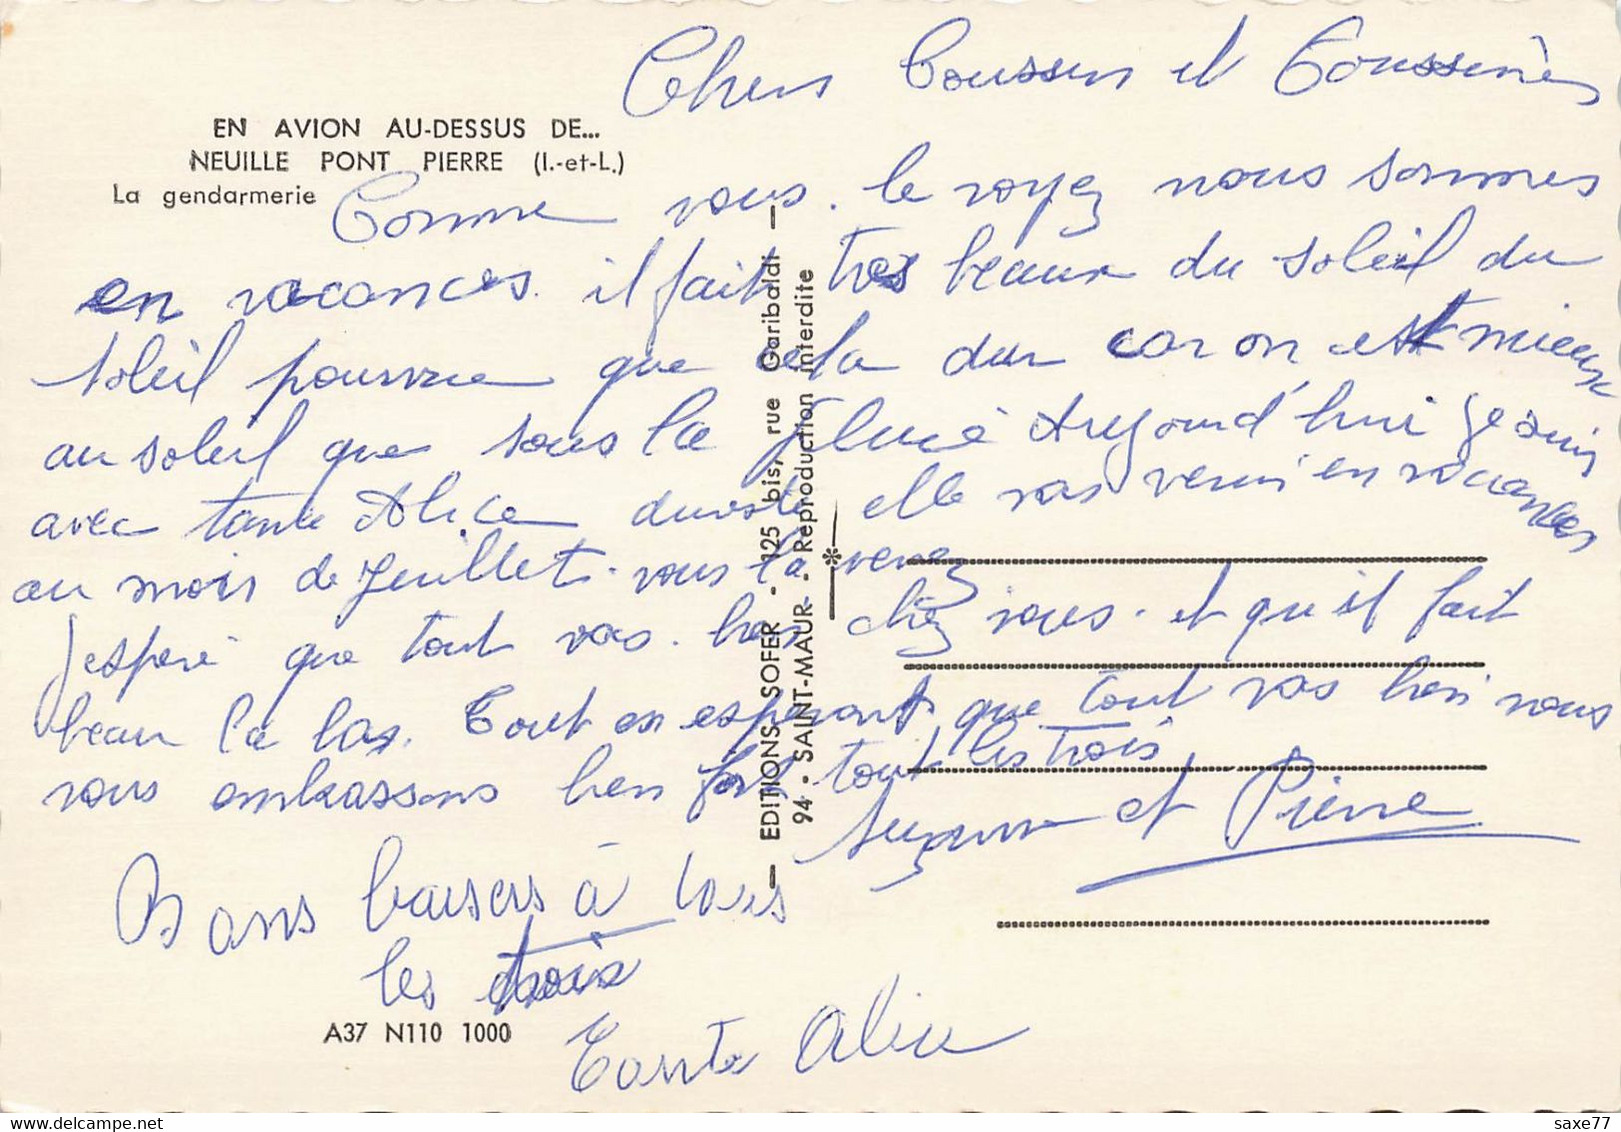 Chers Coussins et Coussinès
EN AVION AU-DESSUS DE...
NEUILLE PONT PIERRE (I.-et-L.)
La gendarmerie
Comme vous le voyez nous sommes
en vacances. il fait tres beaux du soleil du
soleil pourvue que cela dur car on est mieux
au soleil que sous la pluie Aujourd'hui je suis
avec tante Alice elle vas venir en vacances
au mois de Juillet. vous la verez
j'esperé que tout vas bien chez vous. et qu'il fait
beau la bas. Tout en esperant que tout vas bien nous
vous embrassons bien fort tout les trois
Suzanne et Pierre
Bons baisers à tous
les trois
Tante Alice
— EDITIONS SOFER - 125 bis, rue Garibaldi —
94 - SAINT-MAUR - Reproduction interdite
A37 N110 1000
saxe77